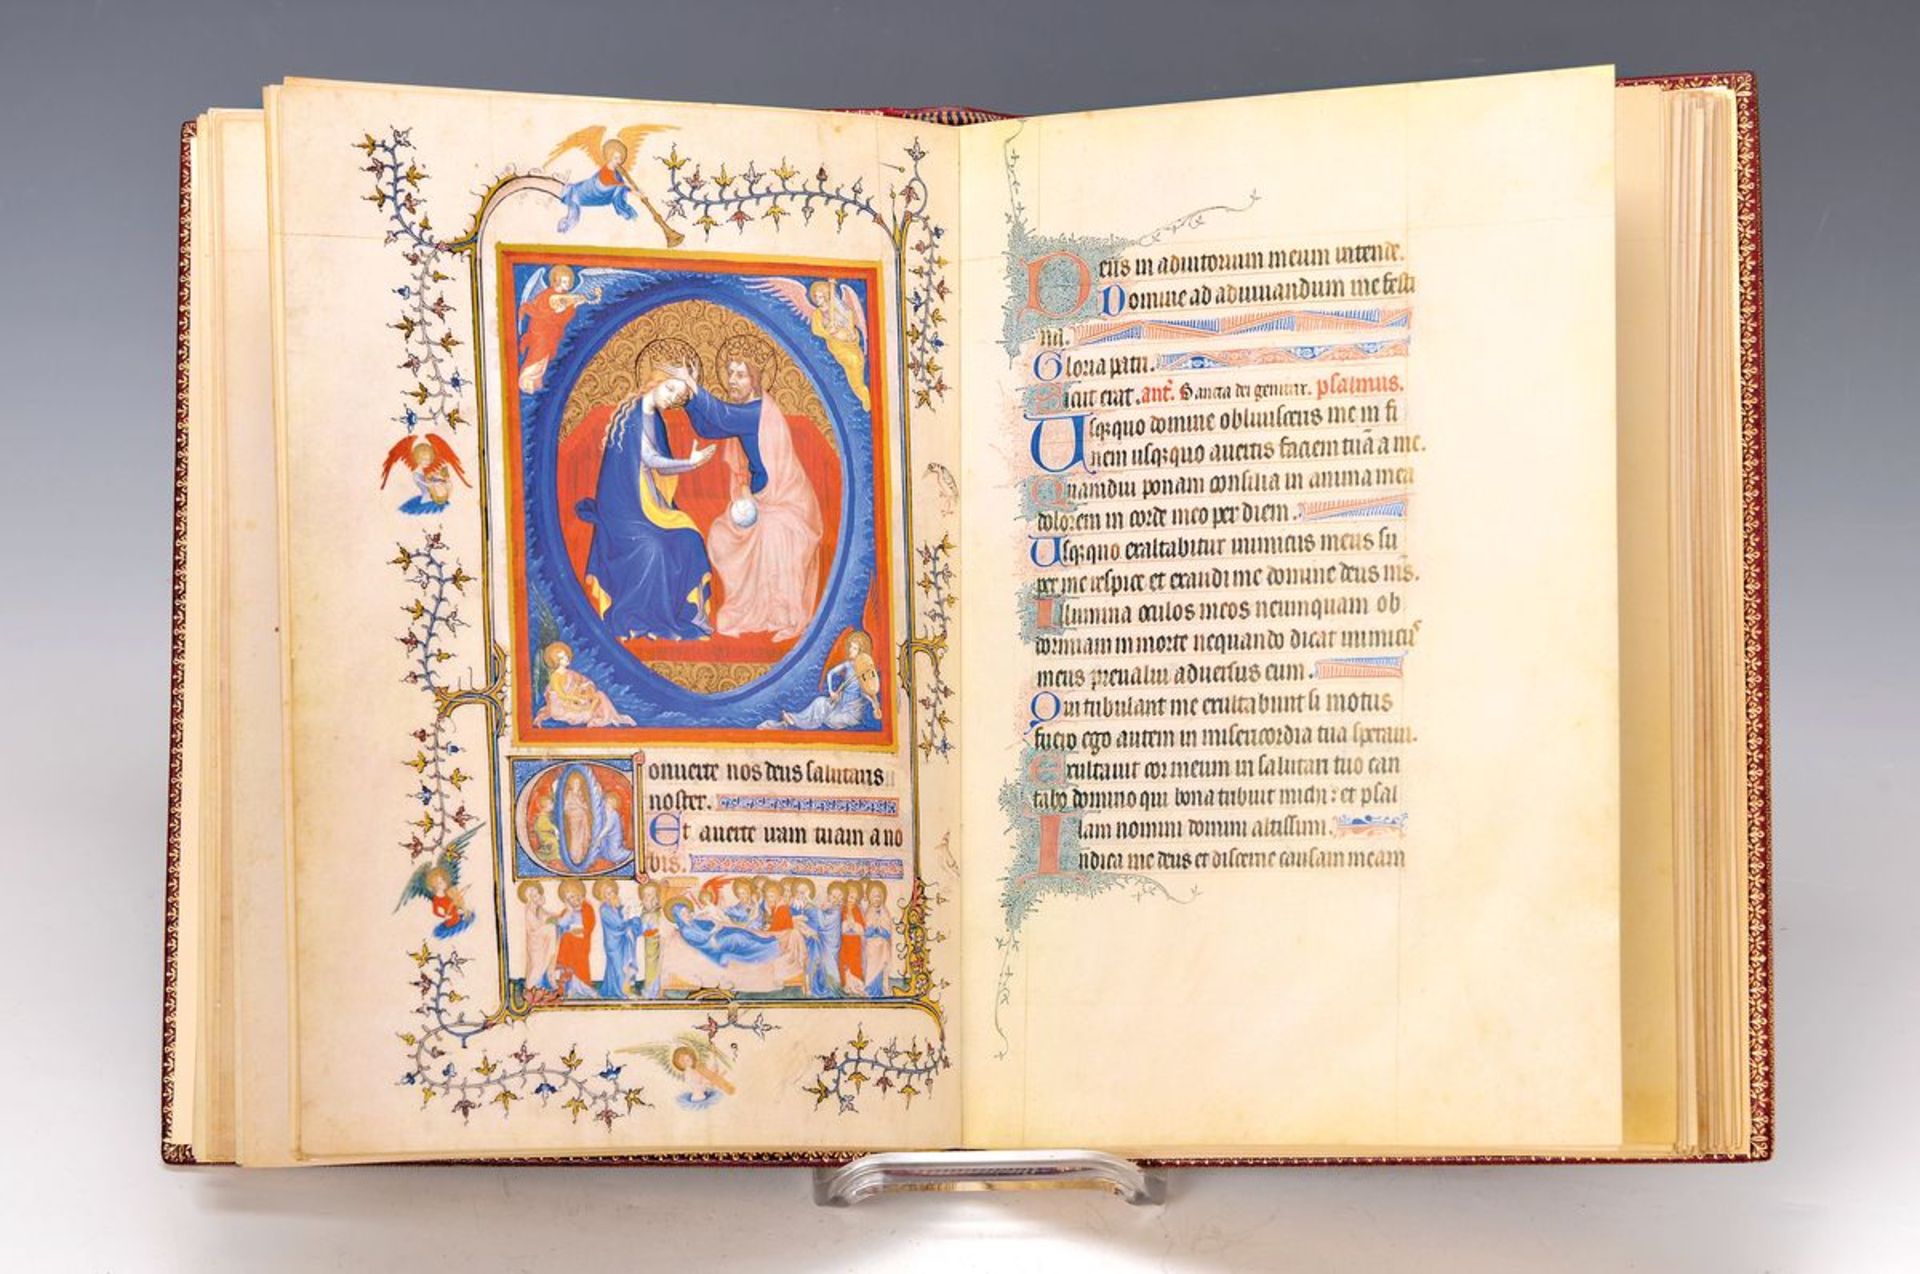 Conuerte nos deus salutaris
noster.
Et auerte iram tuam a no
bis.
Deus in adiutorium meum intende.
Domine ad adiuuandum me festi
na.
Gloria patri.
Sicut erat. ant. Sancta dei genitrix. psalmus.
Usqquo domine obliuisceris me in fi
nem usqquo auertis faciem tuā a me.
Quamdiu ponam consilia in anima mea
dolorem in corde meo per diem.
Usqquo exaltabitur inimicus meus su
per me respice et exaudi me domine deus ms.
Illumina oculos meos neumquam ob
dormiam in morte nequando dicat inimicus
meus preualui aduersus eum.
Qui tribulant me exultabunt si motus
fuero ego autem in misericordia tua speraui.
Exultauit cor meum in salutari tuo can
tabo domino qui bona tribuit michi: et psal
lam nomini domini altissimi.
Iudica me deus et discerne causam meam